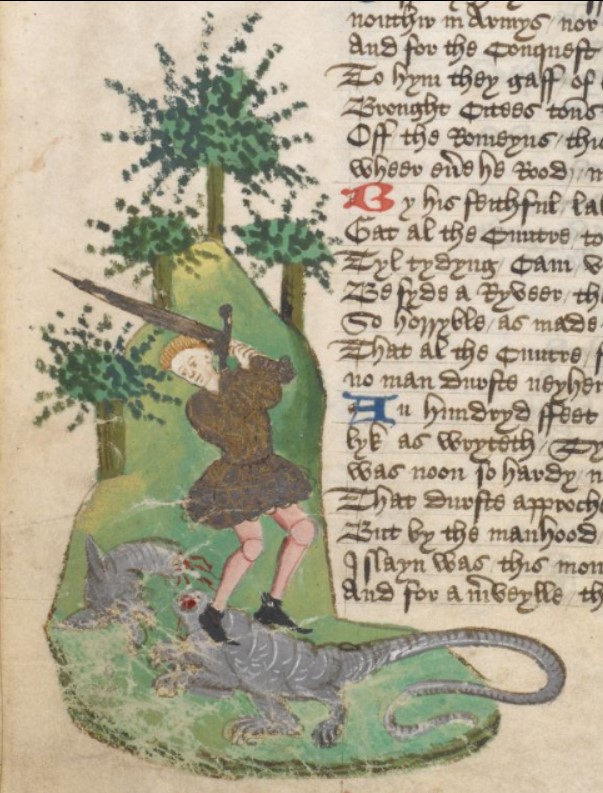 nouthir in Armys / nor
And for the Conquest
To hym they gaff / of
Brought Citees tons
Off the Romeyns / this
wheer evir he Rood / 
By his feithful / la
Gat al the Cuntre / to
Tyl tydyng / Cam
Be syde a Ryveer / th
So horryble / as made
That al the Cuntre / 
no man durste neyher
An hundryd ffeet
lyk as wryteth /
was noon so hardy /
That durste approch
But by the manhood /
Islayn was / this mon
And for a mveylle / th